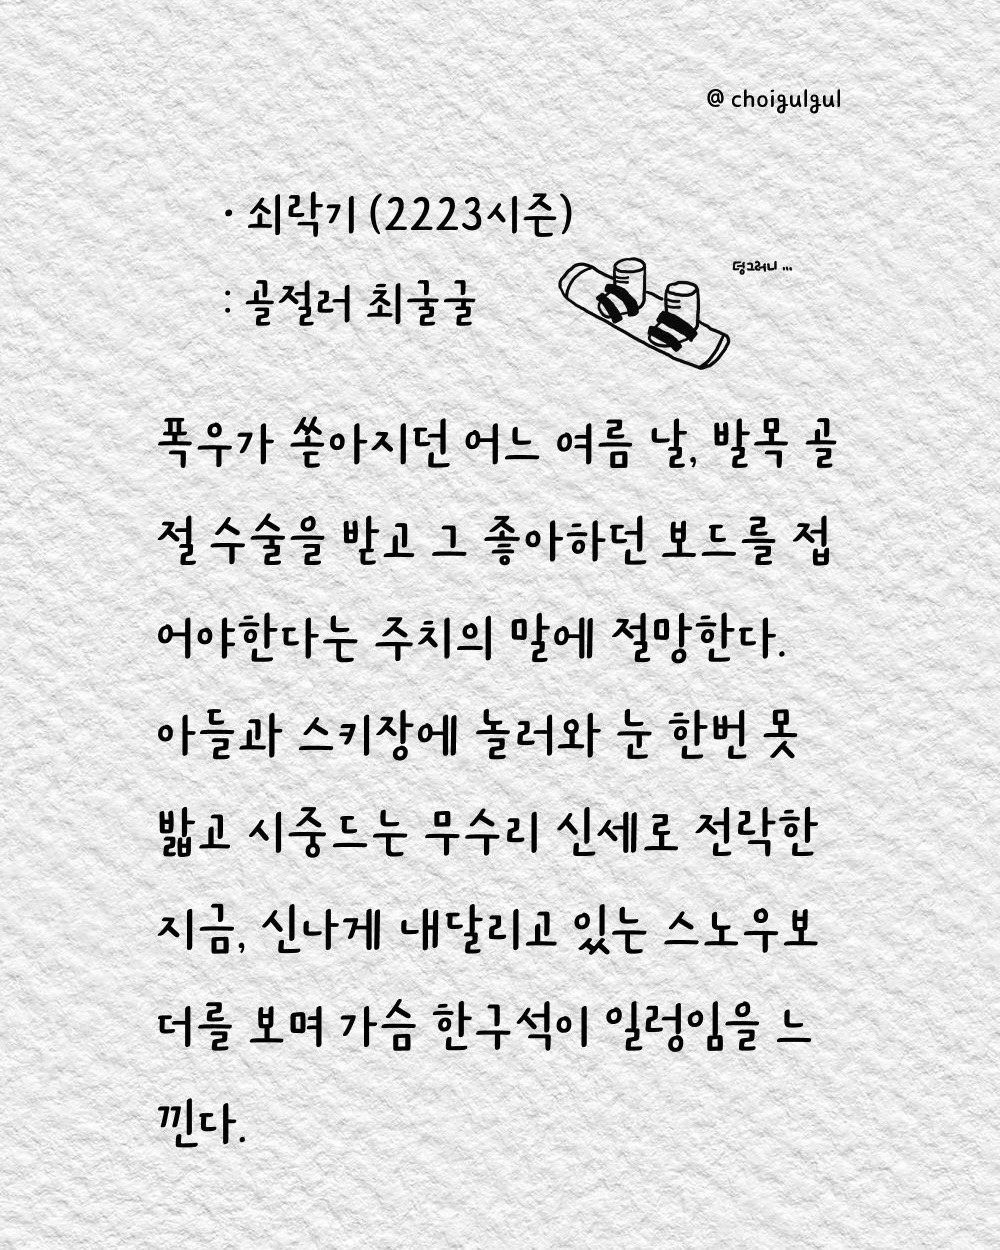 @ choigulgul
· 쇠락기 (2223시즌)
: 골절러 최굴굴
덩그러니 ...
폭우가 쏟아지던 어느 여름 날, 발목 골
절 수술을 받고 그 좋아하던 보드를 접
어야한다는 주치의 말에 절망한다.
아들과 스키장에 놀러와 눈 한번 못
밟고 시중드는 무수리 신세로 전락한
지금, 신나게 내달리고 있는 스노우보
더를 보며 가슴 한구석이 일렁임을 느
낀다.